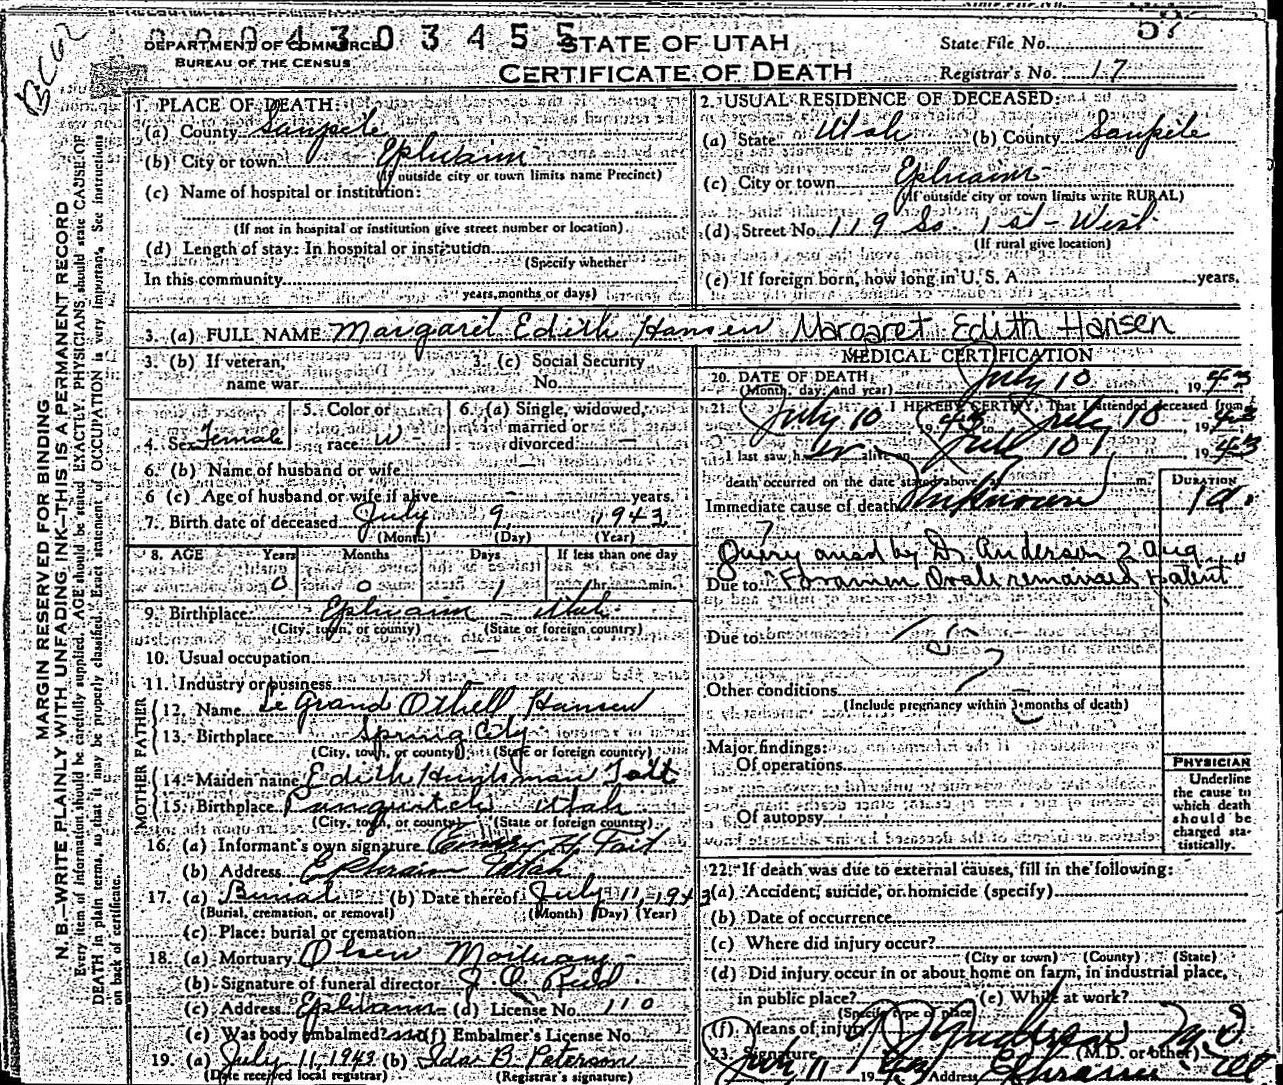 BC02
0 0 0 4 3 0 3 4 5 5
57
DEPARTMENT OF COMMERCE
BUREAU OF THE CENSUS
STATE OF UTAH
CERTIFICATE OF DEATH
State File No.
Registrar's No. 17
MARGIN RESERVED FOR BINDING
N. B.—WRITE PLAINLY WITH UNFADING INK—THIS IS A PERMANENT RECORD
Every item of information should be carefully supplied. AGE should be stated EXACTLY. PHYSICIANS should state CAUSE OF
DEATH in plain terms, so that it may be properly classified. Exact statement of OCCUPATION is very important. See instructions
on back of certificate.
1. PLACE OF DEATH:
(a) County Sanpete
(b) City or town Ephraim
(If outside city or town limits name Precinct)
(c) Name of hospital or institution:
(If not in hospital or institution give street number or location)
(d) Length of stay: In hospital or institution
(Specify whether
In this community
years, months or days)
2. USUAL RESIDENCE OF DECEASED:
(a) State Utah (b) County Sanpete
(c) City or town Ephraim
(If outside city or town limits write RURAL)
(d) Street No. 119 So. 1st - West
(If rural give location)
(e) If foreign born, how long in U. S. A. years.
3. (a) FULL NAME Margaret Edith Hansen Margaret Edith Hansen
3. (b) If veteran, name war
3. (c) Social Security No.
4. Sex Female
5. Color or race W
6. (a) Single, widowed, married or divorced —
6. (b) Name of husband or wife —
6 (c) Age of husband or wife if alive — years.
7. Birth date of deceased July 9, 1943
(Month) (Day) (Year)
8. AGE Years Months Days If less than one day
0 0 1 hr. min.
9. Birthplace Ephraim - Utah
(City, town, or county) (State or foreign country)
10. Usual occupation —
11. Industry or business —
FATHER
12. Name Le Grand Othell Hansen
13. Birthplace Spring City
(City, town, or county) (State or foreign country)
MOTHER
14. Maiden name Edith
15. Birthplace Panguitch Utah
(City, town, or county) (State or foreign country)
16. (a) Informant's own signature Emery H. Tait
(b) Address Ephraim Utah
17. (a) Burial (b) Date thereof July 11, 1943
(Burial, cremation, or removal) (Month) (Day) (Year)
(c) Place: burial or cremation
18. (a) Mortuary Olsen Mortuary
(b) Signature of funeral director
(c) Address Ephraim (d) License No. 110
(e) Was body embalmed? no (f) Embalmer's License No.
19. (a) July 11, 1943 (b) Ida B. Peterson
(Date received local registrar) (Registrar's signature)
MEDICAL CERTIFICATION
20. DATE OF DEATH July 10 1943
(Month, day, and year)
21. I HEREBY CERTIFY, That I attended deceased from
July 10 1943 to July 10, 1943
I last saw her alive on July 10, 1943
death occurred on the date stated above at m.
DURATION
Immediate cause of death Unknown 1 d.
?
Query ansd by Dr. Anderson 2 Aug
Due to "Foramen Ovale remained patent"
Due to
Other conditions
(Include pregnancy within 3 months of death)
Major findings:
Of operations
Of autopsy
PHYSICIAN
Underline
the cause to
which death
should be
charged sta-
tistically.
22. If death was due to external causes, fill in the following:
(a) Accident, suicide, or homicide (specify)
(b) Date of occurrence
(c) Where did injury occur?
(City or town) (County) (State)
(d) Did injury occur in or about home on farm, in industrial place,
in public place? (e) While at work?
(Specify type of place)
(f) Means of injury
23. Signature Anderson M.D.
(M.D. or other)
July 11 1943 Address Ephraim Ut